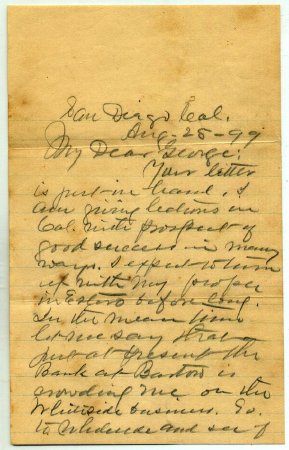 San Diego Cal.
Aug-25-99
My Dear George:
Your letter
is just in hand. I
am giving lectures in
Cal. with prospect of
good success in many
ways. I expect to turn
up with my
in Estero before long.
In the mean time
let me say that
just at present the
Bank at Bartow is
crowding me on the
Whiteside business. Go
to Whiteside and see if